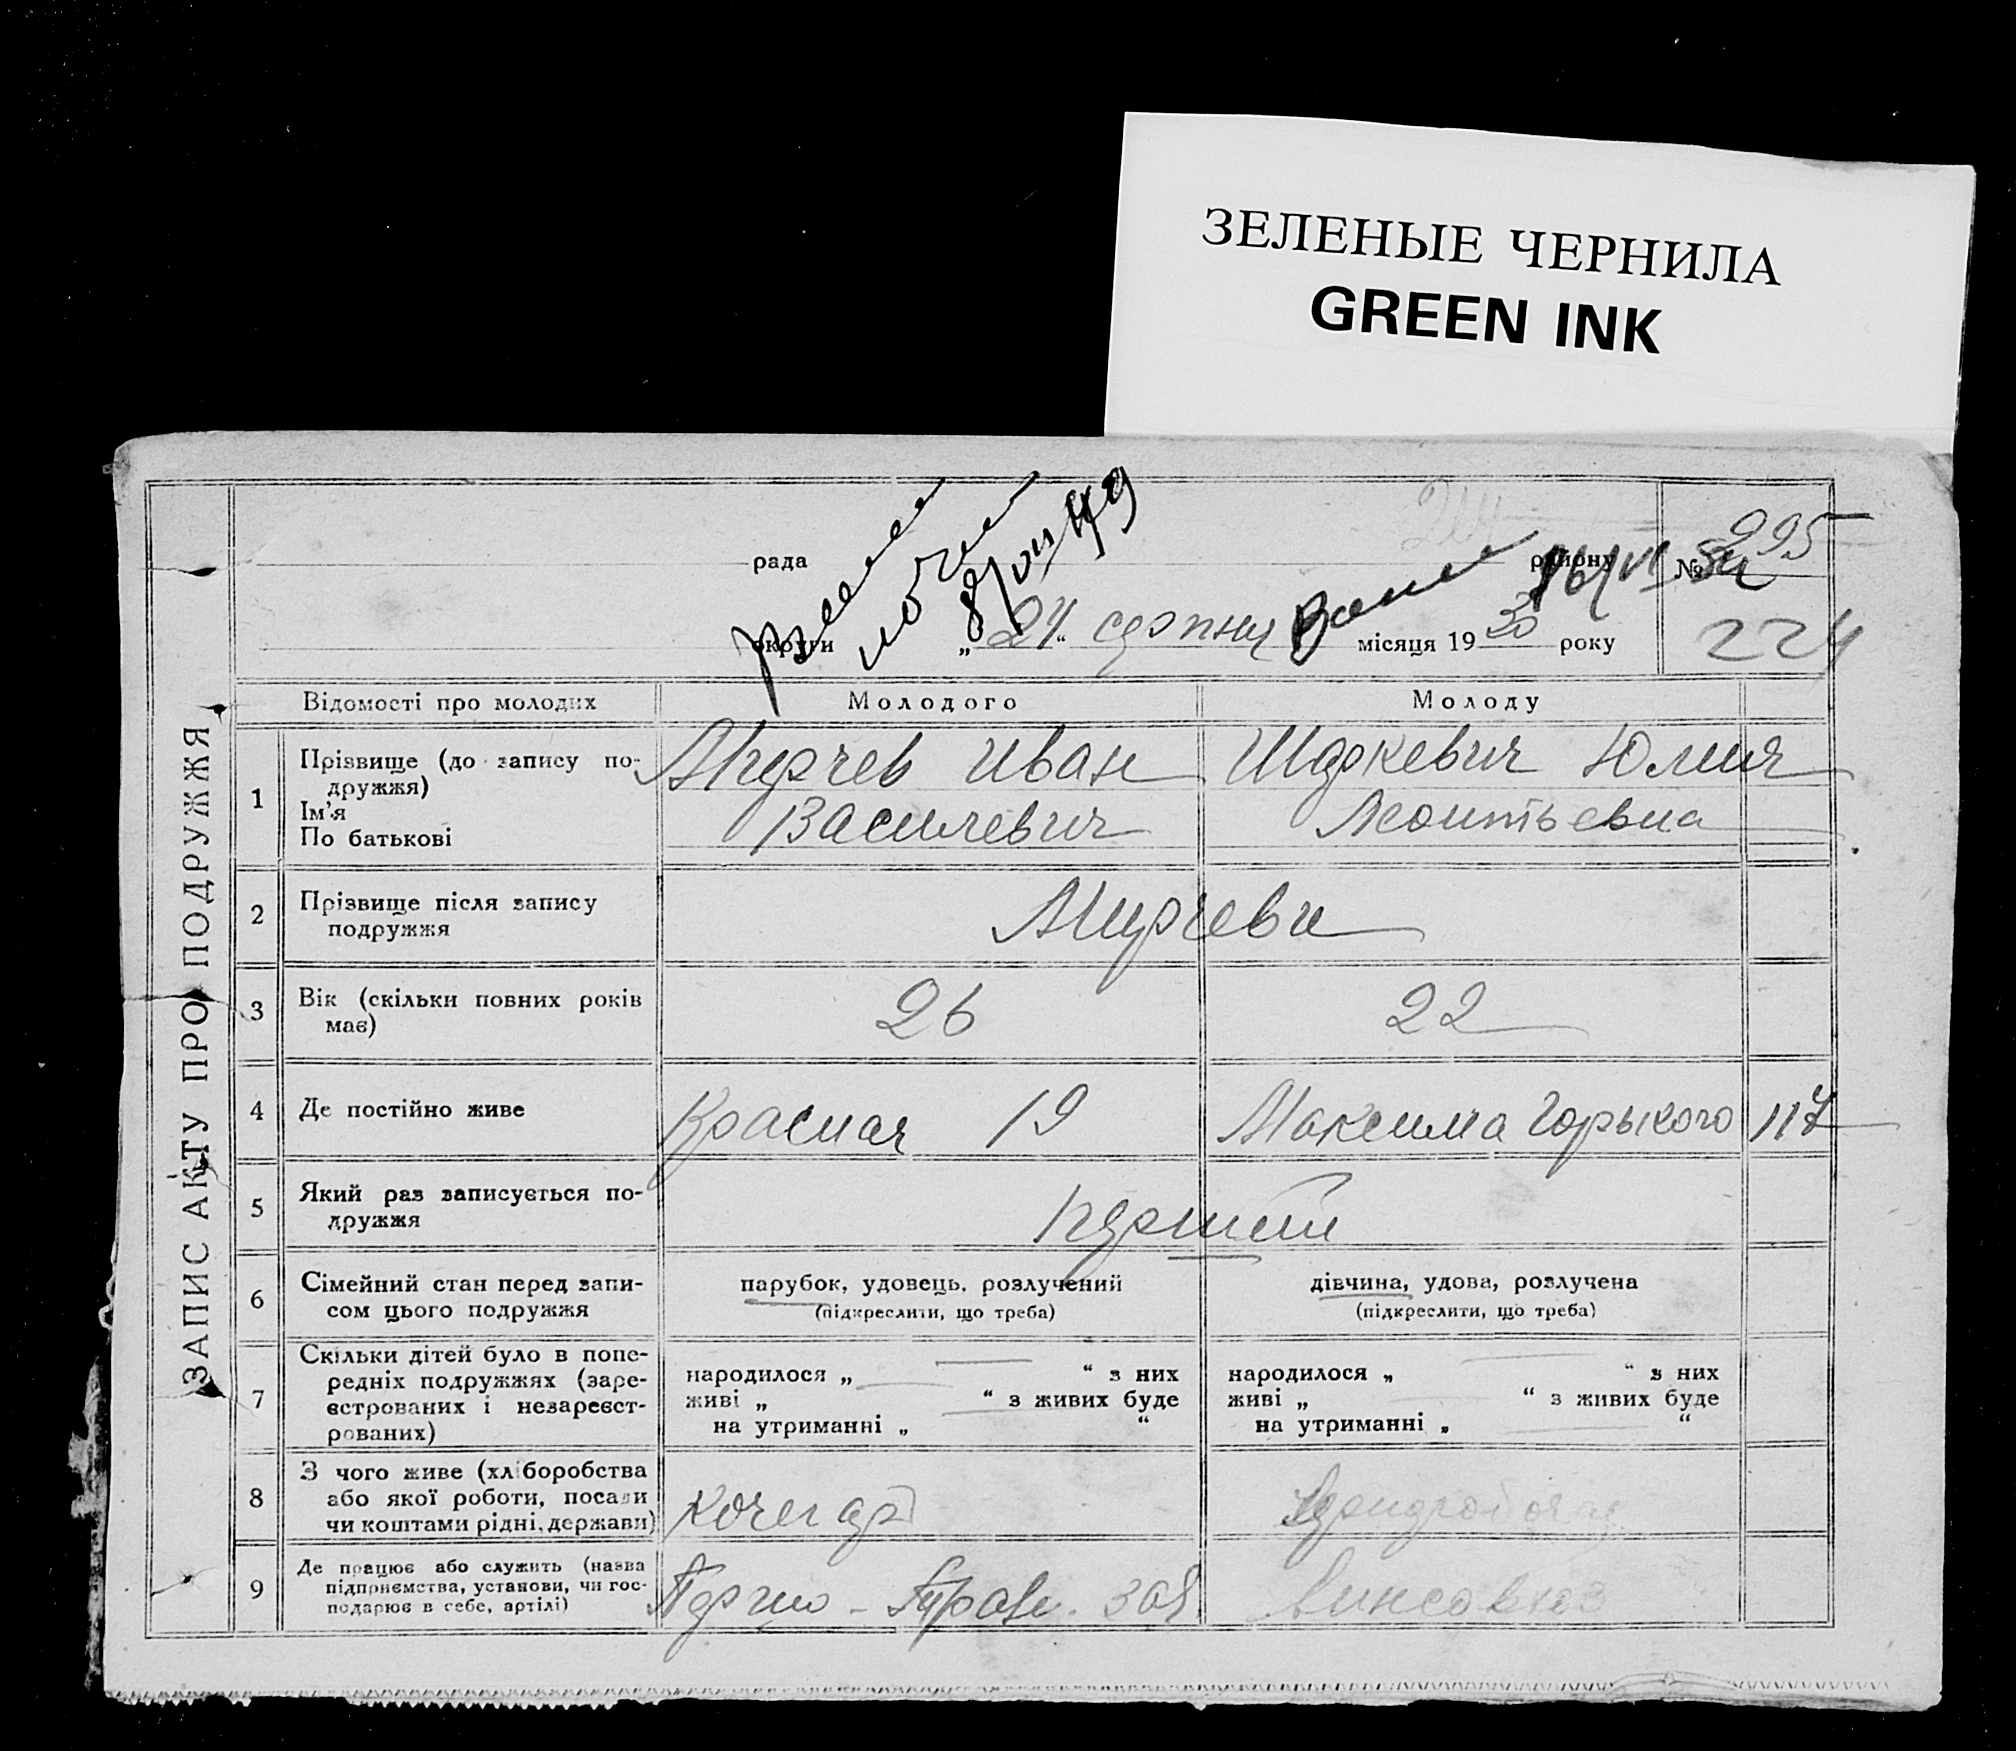 ЗЕЛЕНЫЕ ЧЕРНИЛА
GREEN INK
ЗАПИС АКТУ ПРО ПОДРУЖЖЯ
рада району № 295
округи „24“ серпня місяця 1930 року 224
Відомості про молодих Молодого Молоду
1 Прізвище (до запису по-
дружжя)
Ім'я
По батькові
Иван
Василевич
Юлия
Леонтьевна
2 Прізвище після запису
подружжя
3 Вік (скільки повних років
має)
26 22
4 Де постійно живе
Красная 19 Максима Горького 117
5 Який раз записується по-
дружжя
перший
6 Сімейний стан перед запи-
сом цього подружжя
парубок, удовець, розлучений
(підкреслити, що треба)
дівчина, удова, розлучена
(підкреслити, що треба)
7 Скільки дітей було в попе-
редніх подружжях (заре-
єстрованих і незареєст-
рованих)
народилося „ “ з них
живі „ “ з живих буде
на утриманні „ “
народилося „ “ з них
живі „ “ з живих буде
на утриманні „ “
8 З чого живе (хліборобства
або якої роботи, посади
чи коштами рідні, держави)
кочегар
9 Де працює або служить (назва
підприємства, установи, чи гос-
подарює в себе, артілі)